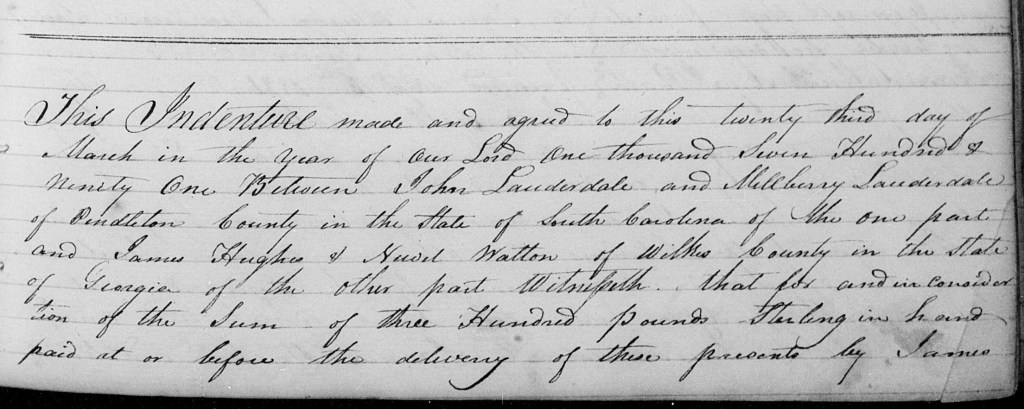 This Indenture made and agreed to this twenty third day of
March in the Year of Our Lord One thousand Seven Hundred &
Ninity One Between John Lauderdale and Millberry Lauderdale
of Pendleton County in the State of South Carolina of the one part
and James Hughes & Newel Walton of Wilkes County in the State
of Georgia of the other part Witnesseth. that for and in consider
tion of the Sum of three Hundred pounds Starling in hand
paid at or before the delivery of these presents by James